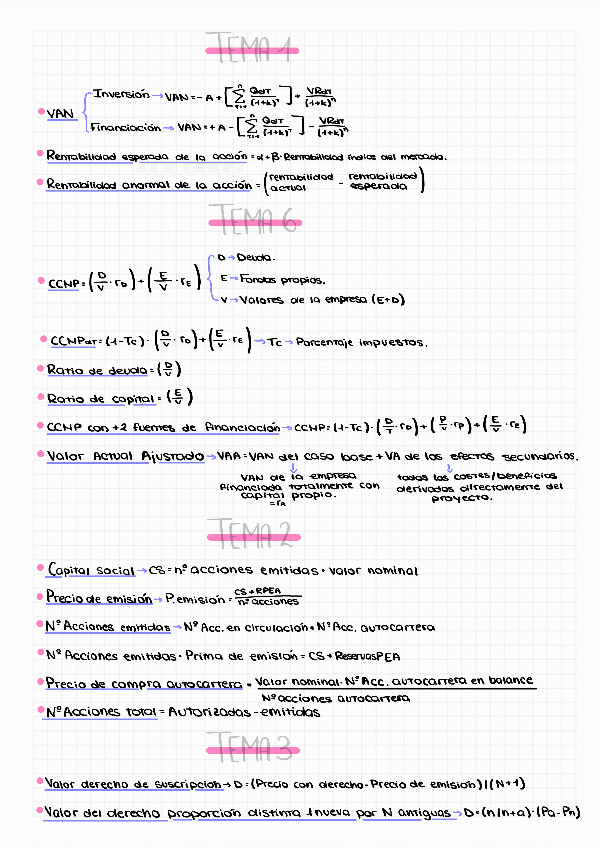 TEMA 1
VAN
Inversión → VAN = - A + [ⁿΣT=1 QdT/(1+k)ᵀ] + VRdT/(1+k)ⁿ
Financiación → VAN = + A - [ⁿΣT=1 QdT/(1+k)ᵀ] - VRdT/(1+k)ⁿ
Rentabilidad esperada de la acción = α + β · Rentabilidad índice del mercado.
Rentabilidad anormal de la acción = (rentabilidad actual - rentabilidad esperada)
TEMA 6
CCMP = (D/V · rD) + (E/V · rE)
D → Deuda.
E → Fondos propios.
V → Valores de la empresa (E+D)
CCMPdT = (1-Tc) · (D/V · rD) + (E/V · rE) → Tc → Porcentaje impuestos.
Ratio de deuda = (D/V)
Ratio de capital = (E/V)
CCMP con +2 fuentes de financiación → CCMP = (1-Tc) · (D/V · rD) + (P/V · rP) + (E/V · rE)
Valor Actual Ajustado → VAA = VAN del caso base + VA de los efectos secundarios.
VAN de la empresa
financiada totalmente con
capital propio.
= rA
todos los costes/beneficios
derivados directamente del
proyecto.
TEMA 2
Capital social → CS = nº acciones emitidas · valor nominal
Precio de emisión → P. emisión = CS + RPEA / nº acciones
Nº Acciones emitidas → Nº Acc. en circulación + Nº Acc. autocartera
Nº Acciones emitidas · Prima de emisión = CS + ReservasPEA
Precio de compra autocartera = Valor nominal · Nº Acc. autocartera en balance / Nº acciones autocartera
Nº Acciones total = Autorizadas - emitidas
TEMA 3
Valor derecho de suscripción → D = (Precio con derecho - Precio de emisión) / (N+1)
Valor del derecho proporción distinta 1 nueva por N antiguas → D = (n/n+a) · (Pa - Pn)